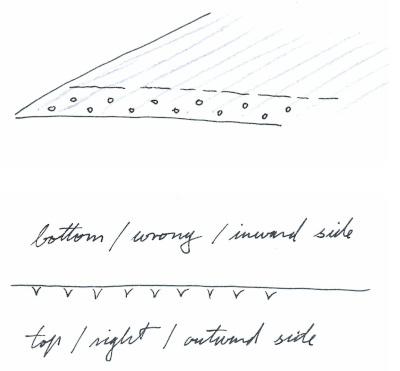 bottom / wrong / inward side
top / right / outward side